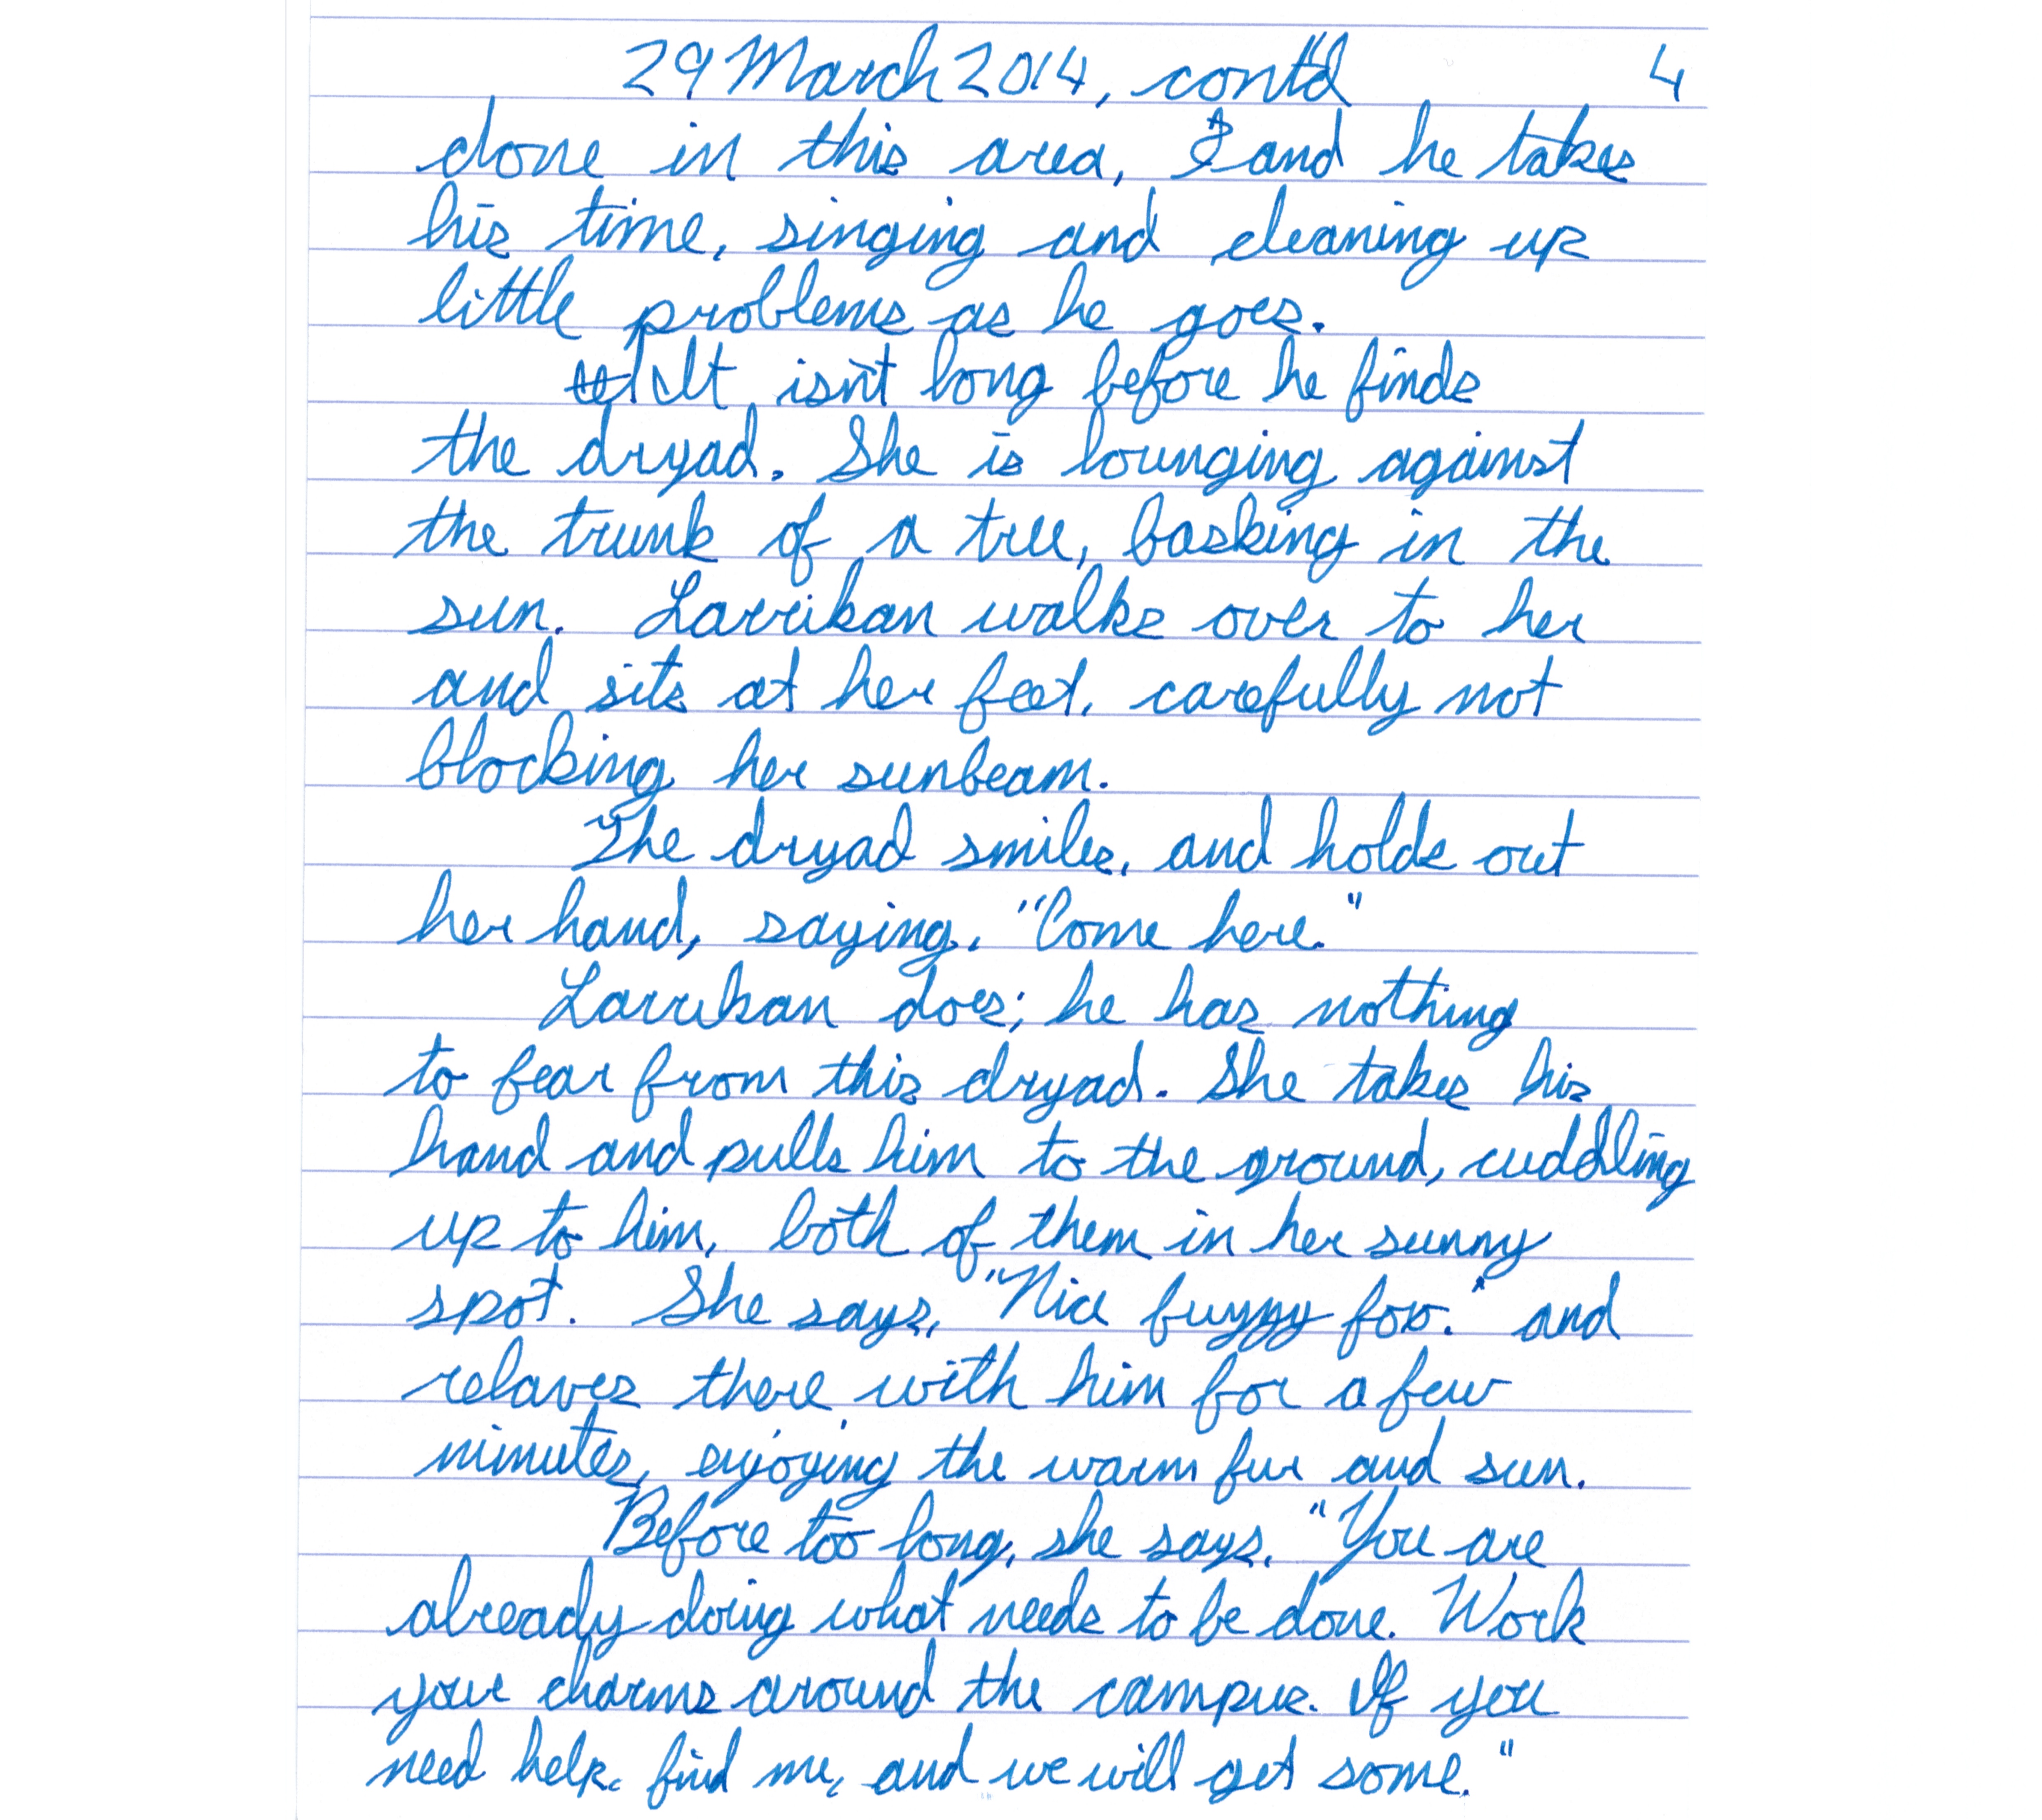 29 March 2014, cont'd 4
done in this area, and he takes
his time, singing and cleaning up
little problems as he goes.
It isn't long before he finds
the dryad. She is lounging against
the trunk of a tree, basking in the
sun. Larrikan walks over to her
and sits at her feet, carefully not
blocking her sunbeam.
The dryad smiles, and holds out
her hand, saying, "Come here."
Larrikan does; he has nothing
to fear from this dryad. She takes his
hand and pulls him to the ground, cuddling
up to him, both of them in her sunny
spot. She says, "Nice fuzzy fox." and
relaxes there with him for a few
minutes, enjoying the warm fur and sun.
Before too long, she says, "You are
already doing what needs to be done. Work
your charms around the campus. If you
need help, find me, and we will get some."